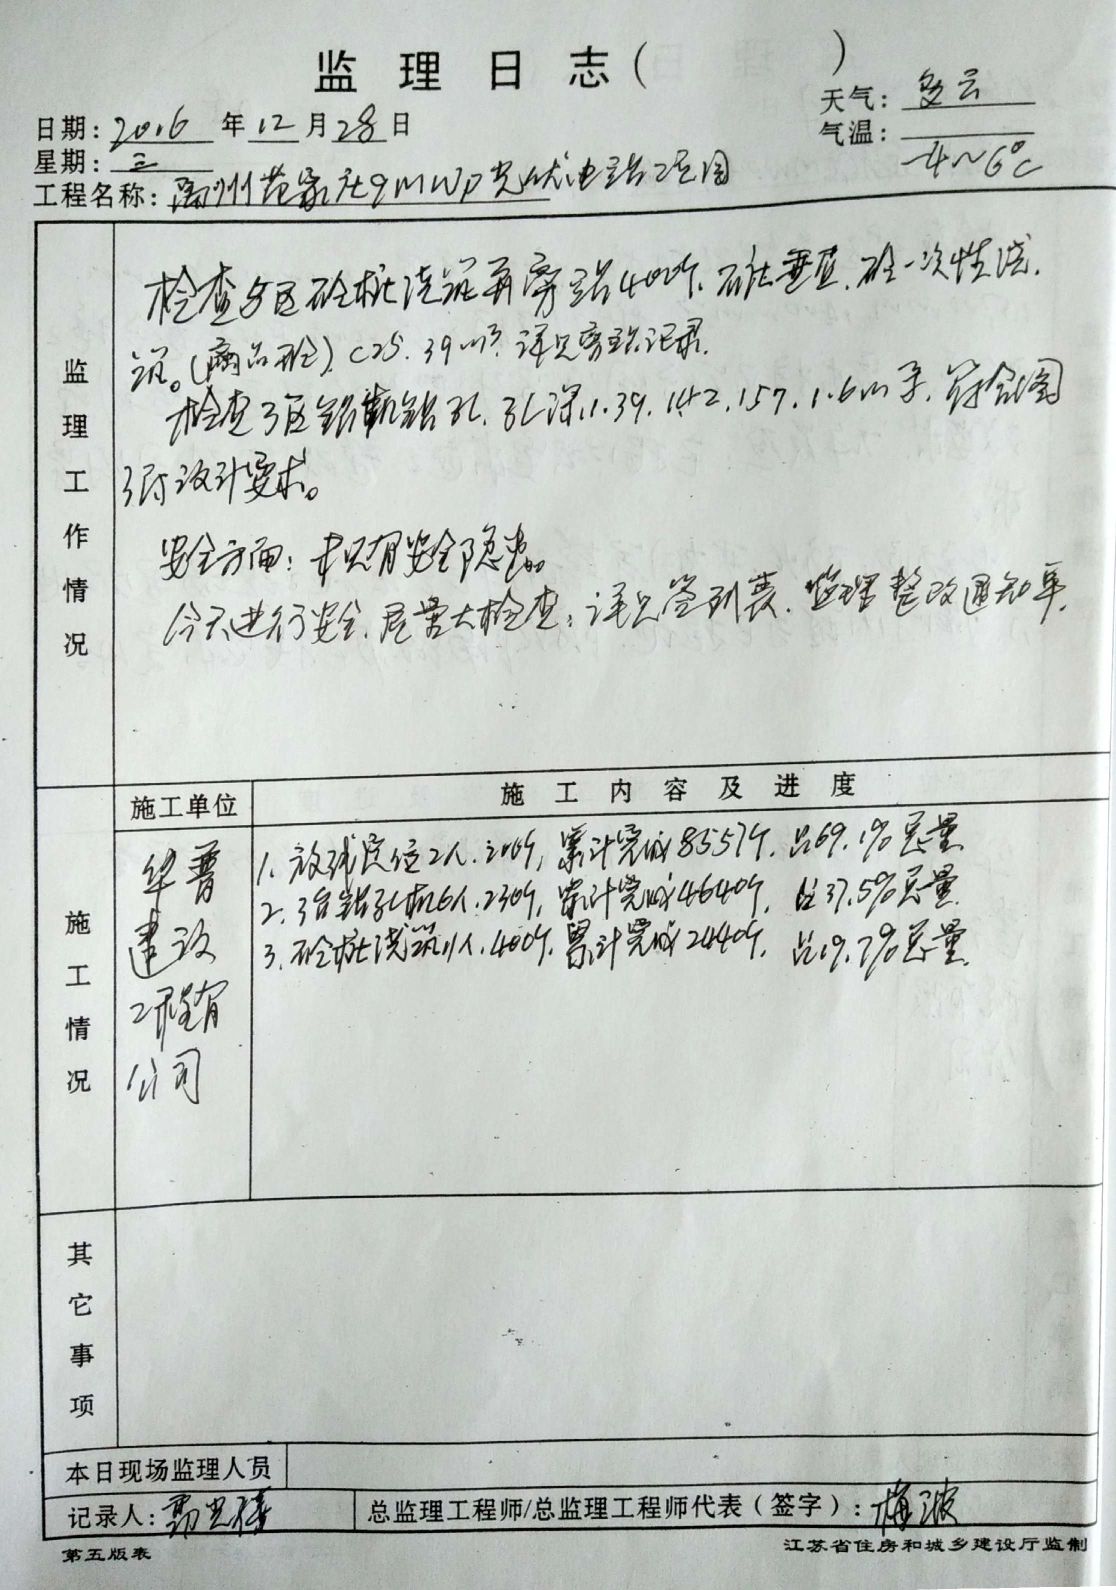 监理日志(          )
天气: 多云
日期: 2016 年 12 月 28 日
气温: -4~6℃
星期: 三
工程名称: 禹州范家庄9MWp光伏电站工程
检查5区砼桩浇筑再旁站400个. 石桩垂直. 砼一次性浇
筑。(商品砼) C25. 39m³. 详见旁站记录.
检查3区钻机钻孔. 孔深1.39. 1.42. 1.57. 1.6m多. 符合图
设计要求。
安全方面: 未见有安全隐患。
今天进行安全. 质量大检查. 详见签到表. 监理整改通知单.
监理工作情况
施工单位
施工内容及进度
华普建设工程有公司
1. 放线定位2人. 200个, 累计完成8557个. 占69.1%总量
2. 3台钻孔机6人. 230个, 累计完成4640个. 占37.5%总量.
3. 砼桩浇筑11人. 400个. 累计完成2440个. 占19.7%总量.
施工情况
其它事项
本日现场监理人员
记录人:
总监理工程师/总监理工程师代表(签字): 梅波
第五版表
江苏省住房和城乡建设厅监制